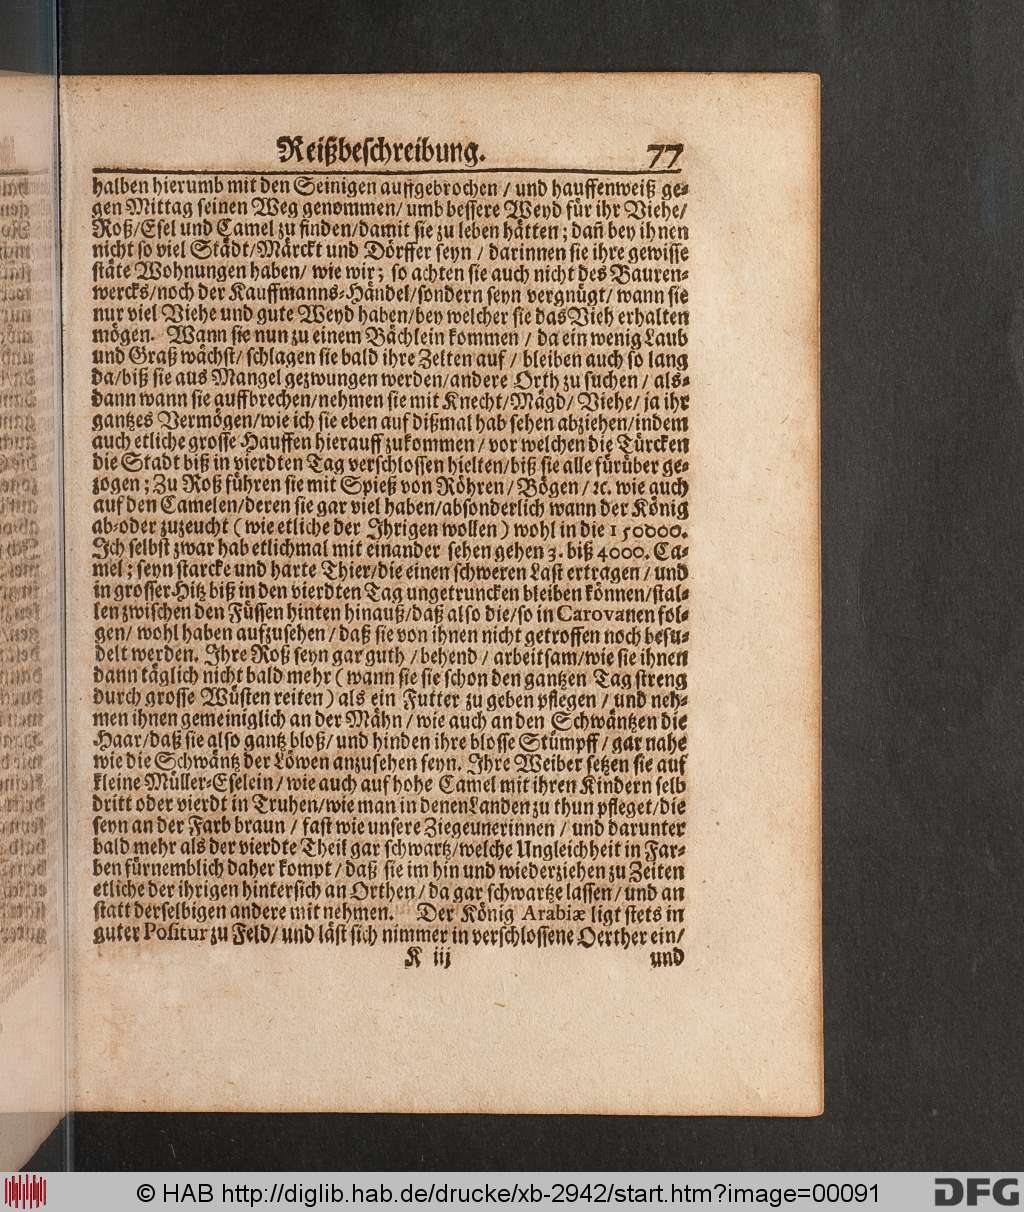 Reißbeschreibung. 77
halben hierumb mit den Seinigen auffgebrochen / und hauffenweiß ge-
gen Mittag seinen Weg genommen/ umb bessere Weyd für ihr Viehe/
Roß/Esel und Camel zu finden/damit sie zu leben hätten; dañ bey ihnen
nicht so viel Städt/Märckt und Dörffer seyn / darinnen sie ihre gewisse
stäte Wohnungen haben/ wie wir; so achten sie auch nicht des Bauren-
wercks/noch der Kauffmanns-Händel/sondern seyn vergnügt/ wann sie
nur viel Viehe und gute Weyd haben/bey welcher sie das Vieh erhalten
mögen. Wann sie nun zu einem Bächlein kommen / da ein wenig Laub
und Graß wächst/ schlagen sie bald ihre Zelten auf / bleiben auch so lang
da/biß sie aus Mangel gezwungen werden/andere Orth zu suchen / als-
dann wann sie auffbrechen/nehmen sie mit Knecht/Mägd/ Viehe/ ja ihr
gantzes Vermögen/wie ich sie eben auf dißmal hab sehen abziehen/indem
auch etliche grosse Hauffen hierauff zukommen / vor welchen die Türcken
die Stadt biß in vierdten Tag verschlossen hielten/biß sie alle fürüber ge-
zogen; Zu Roß führen sie mit Spieß von Röhren/ Bögen / ꝛc. wie auch
auf den Camelen/deren sie gar viel haben/absonderlich wann der König
ab-oder zuzeucht ( wie etliche der Ihrigen wollen ) wohl in die 150000.
Ich selbst zwar hab etlichmal mit einander sehen gehen 3. biß 4000. Ca-
mel; seyn starcke und harte Thier/die einen schweren Last ertragen / und
in grosser Hitz biß in den vierdten Tag ungetruncken bleiben können/stal-
len zwischen den Füssen hinten hinauß/daß also die/so in Carovanen fol-
gen/ wohl haben aufzusehen / daß sie von ihnen nicht getroffen noch besu-
delt werden. Ihre Roß seyn gar guth / behend / arbeitsam/wie sie ihnen
dann täglich nicht bald mehr ( wann sie sie schon den gantzen Tag streng
durch grosse Wüsten reiten ) als ein Futter zu geben pflegen / und neh-
men ihnen gemeiniglich an der Mähn / wie auch an den Schwäntzen die
Haar/daß sie also gantz bloß/ und hinden ihre blosse Stümpff / gar nahe
wie die Schwäntz der Löwen anzusehen seyn. Ihre Weiber setzen sie auf
kleine Müller-Eselein / wie auch auf hohe Camel mit ihren Kindern selb
dritt oder vierdt in Truhen/wie man in denen Landen zu thun pfleget/die
seyn an der Farb braun / fast wie unsere Ziegeunerinnen / und darunter
bald mehr als der vierdte Theil gar schwartz/welche Ungleichheit in Far-
ben fürnemblich daher kompt / daß sie im hin und wiederziehen zu Zeiten
etliche der ihrigen hintersich an Orthen / da gar schwartze lassen / und an
statt derselbigen andere mit nehmen. Der König Arabiæ ligt stets in
guter Positur zu Feld/ und läst sich nimmer in verschlossene Oerther ein/
K iij und
© HAB http://diglib.hab.de/drucke/xb-2942/start.htm?image=00091 DFG